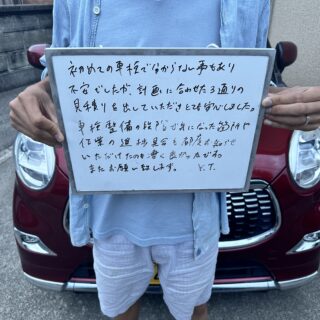 初めての車検で分からない事もあり
不安でしたが、計画に合わせた3通りの
見積りを出していただけとても安心しました。
車検整備の段階で気になった箇所や
作業の進捗具合も都度お知らせ
いただけたのも凄く良かったです。
またお願い致します。 Y.T.